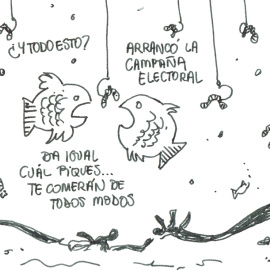 ¿Y TODO ESTO?
ARRANCÓ LA
CAMPAÑA
ELECTORAL
DA IGUAL
CUÁL PIQUES...
TE COMERÁN DE
TODOS MODOS